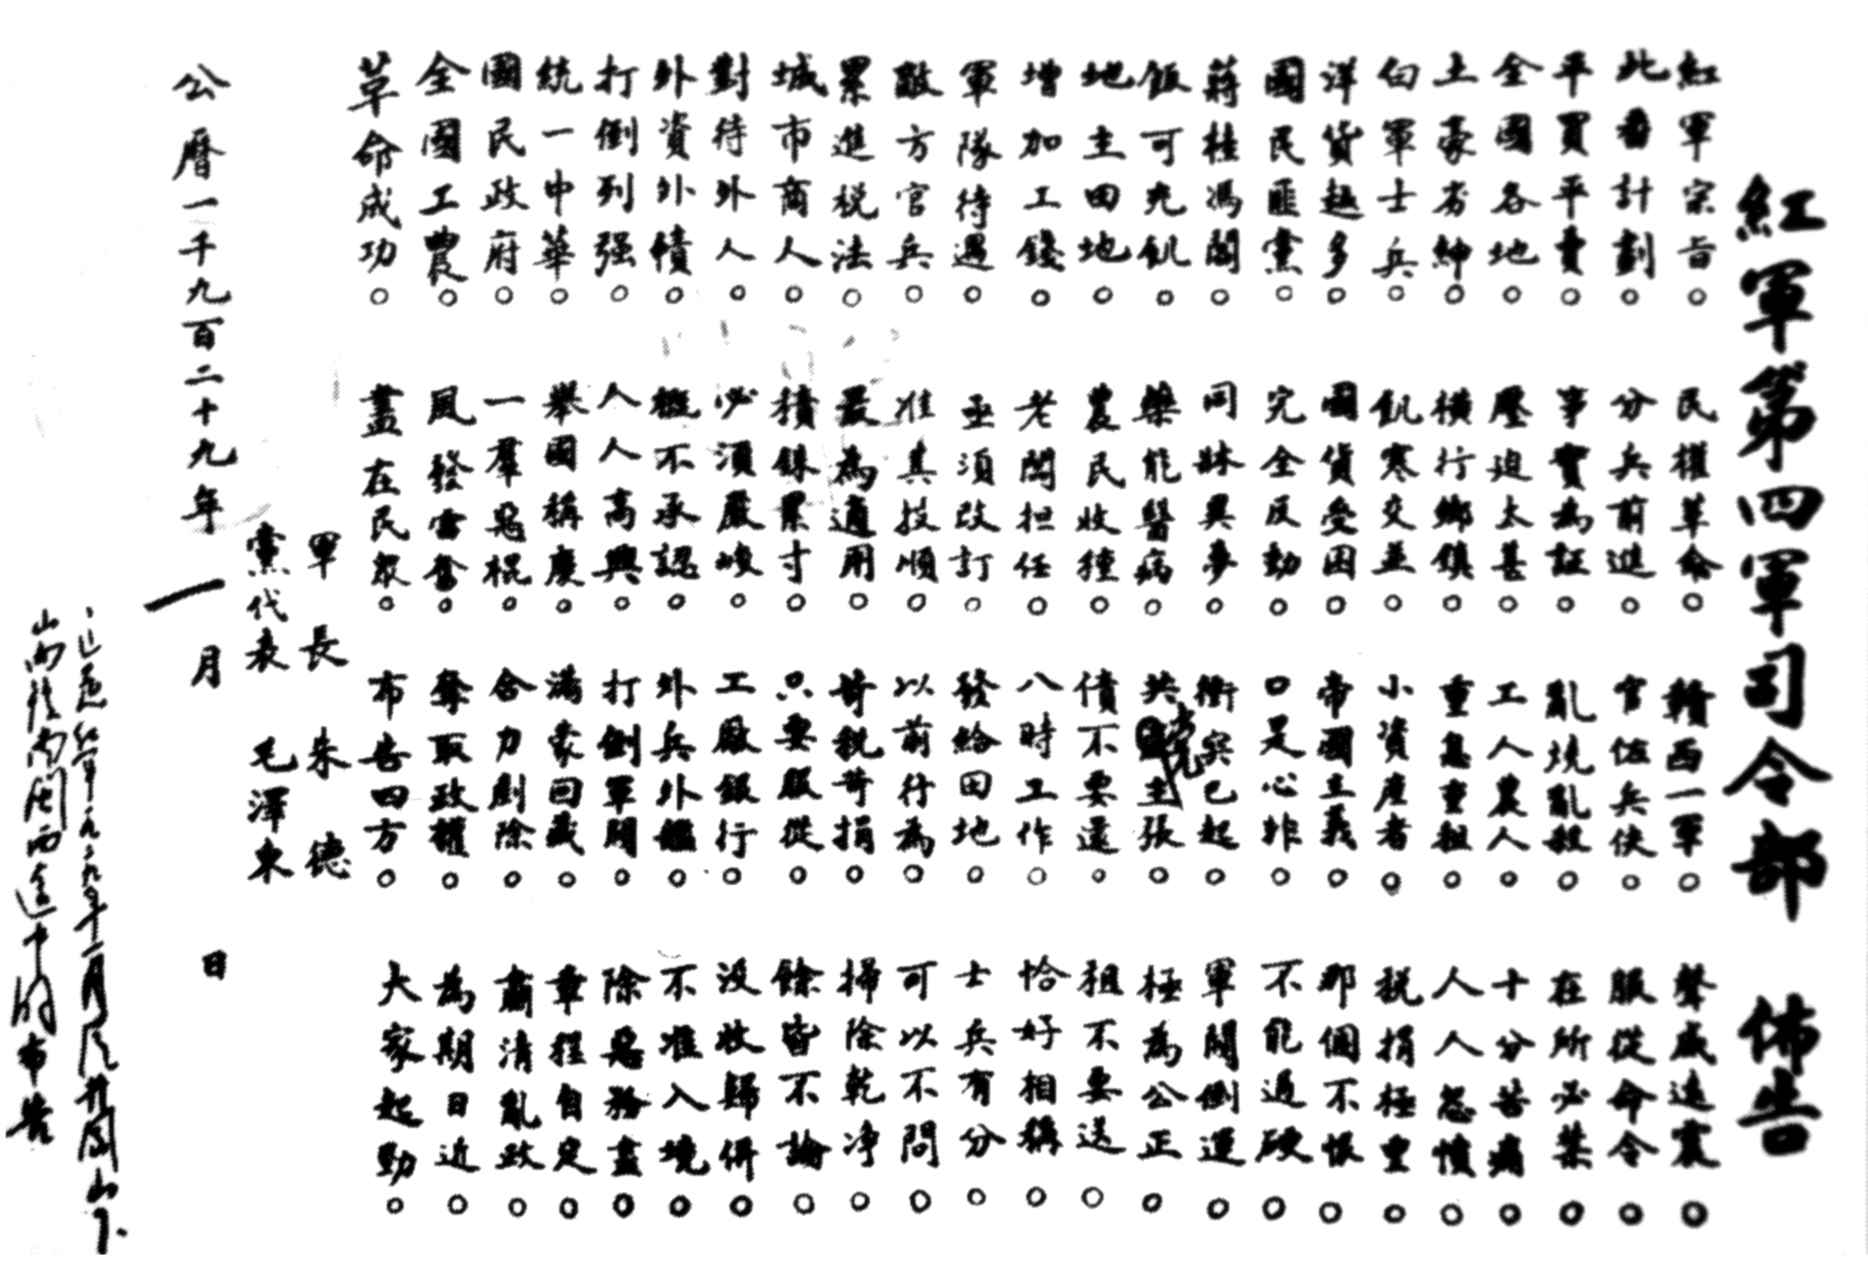 紅軍第四軍司令部 佈告
紅軍宗旨。民權革命。贛西一軍。聲威遠震。
此番計劃。分兵前進。官佐兵伕。服從命令。
平買平賣。事實為証。亂燒亂殺。在所必禁。
全國各地。壓迫太甚。工人農人。十分苦痛。
土豪劣紳。橫行鄉鎮。重息重租。人人忽憤。
白軍士兵。飢寒交並。小資產者。稅捐極重。
洋貨越多。國貨受困。帝國主義。那個不恨。
國民匪黨。完全反動。口是心非。不能過硬。
蔣桂馮閻。同牀異夢。衝突已起。軍閥倒運。
飯可充飢。藥能醫病。共黨主張。極為公正。
地主田地。農民收種。債不要還。租不要送。
增加工錢。老闆担任。八時工作。恰好相稱。
軍隊待遇。亟須改訂。發給田地。士兵有分。
敵方官兵。准其投順。以前行為。可以不問。
累進税法。最為適用。苛稅苛捐。掃除乾净。
城市商人。積銖累寸。只要服從。餘皆不論。
對待外人。必須嚴峻。工廠銀行。沒收歸併。
外資外債。概不承認。外兵外艦。不准入境。
打倒列强。人人高興。打倒軍閥。除惡務盡。
統一中華。舉國稱慶。滿蒙回藏。章程自定。
國民政府。一羣惡棍。合力剷除。肅清亂政。
全國工農。風發雷奮。奪取政權。為期日近。
革命成功。盡在民眾。布告四方。大家起動。
軍長 朱德
黨代表 毛澤東
公曆一千九百二十九年一月 日
紅軍一九二九年一月從井岡山下
山向贛南閩西途中的布告